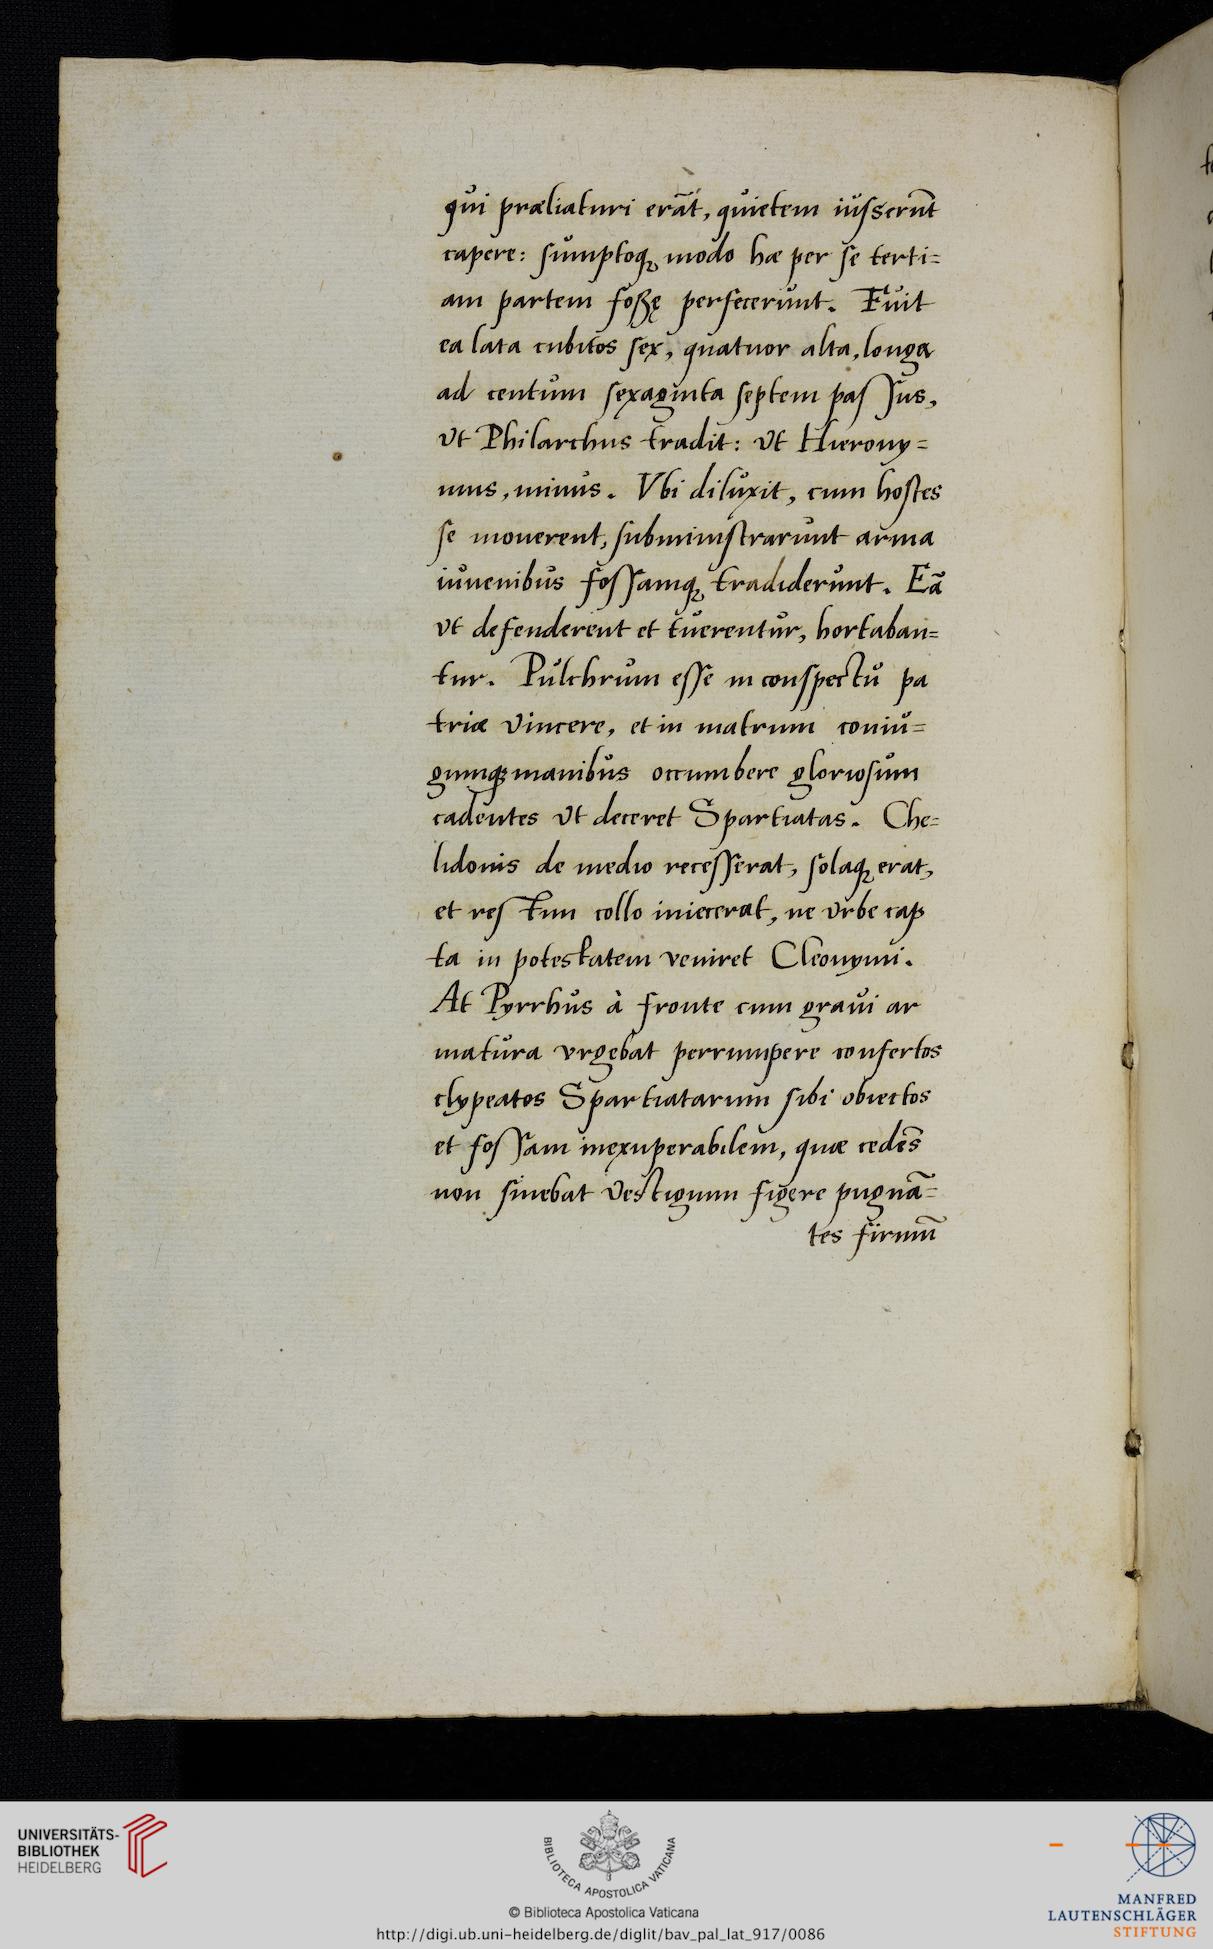 qui præliaturi erãt, quietem iusserũt
capere: sumptoq; modo hæ per se terti=
am partem foßę perfecerunt. Fuit
ea lata cubitos sex, quatuor alta, longa
ad centum sexaginta septem passus,
ut Philarchus tradit: ut Hierony=
mus, minus. Vbi diluxit, cum hostes
se mouerent, subministrarunt arma
iuuenibus fossamq; tradiderunt. Eã
ut defenderent et tuerentur, hortaban=
tur. Pulchrum esse in conspectu pa
triæ vincere, et in matrum coniu=
gumq; manibus occumbere gloriosum
cadentes ut deceret Spartiatas. Che=
lidonis de medio recesserat, solaq; erat,
et restim collo iniecerat, ne urbe cap
ta in potestatem veniret Cleonymi.
At Pyrrhus à fronte cum graui ar
matura vrgebat perrumpere confertos
clypeatos Spartiatarum sibi obiectos
et fossam inexuperabilem, quæ cedẽs
non sinebat vestigium figere pugnã=
tes firmũ
UNIVERSITÄTS-
BIBLIOTHEK
HEIDELBERG
BIBLIOTECA APOSTOLICA VATICANA
© Biblioteca Apostolica Vaticana
http://digi.ub.uni-heidelberg.de/diglit/bav_pal_lat_917/0086
MANFRED
LAUTENSCHLÄGER
STIFTUNG